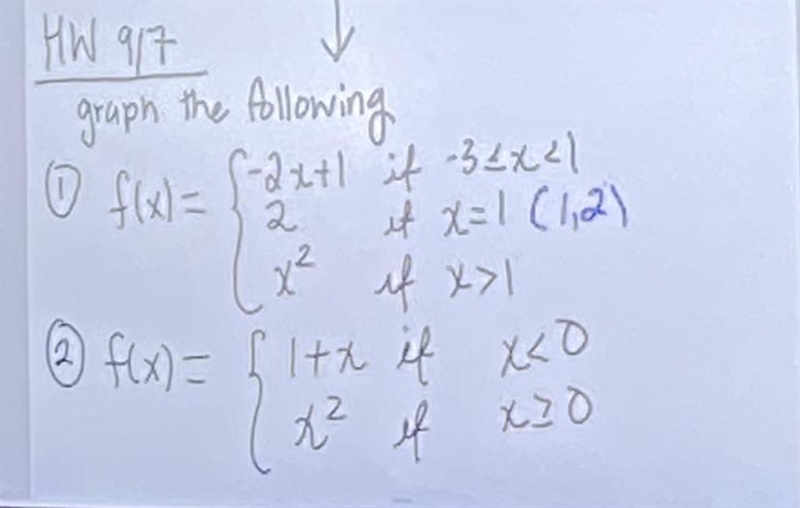 HW 9/7
graph the following
① f(x)= { -2x+1 if -3≤x<1
2 if x=1 (1,2)
x² if x>1
② f(x)= { 1+x if x<0
x² if x≥0